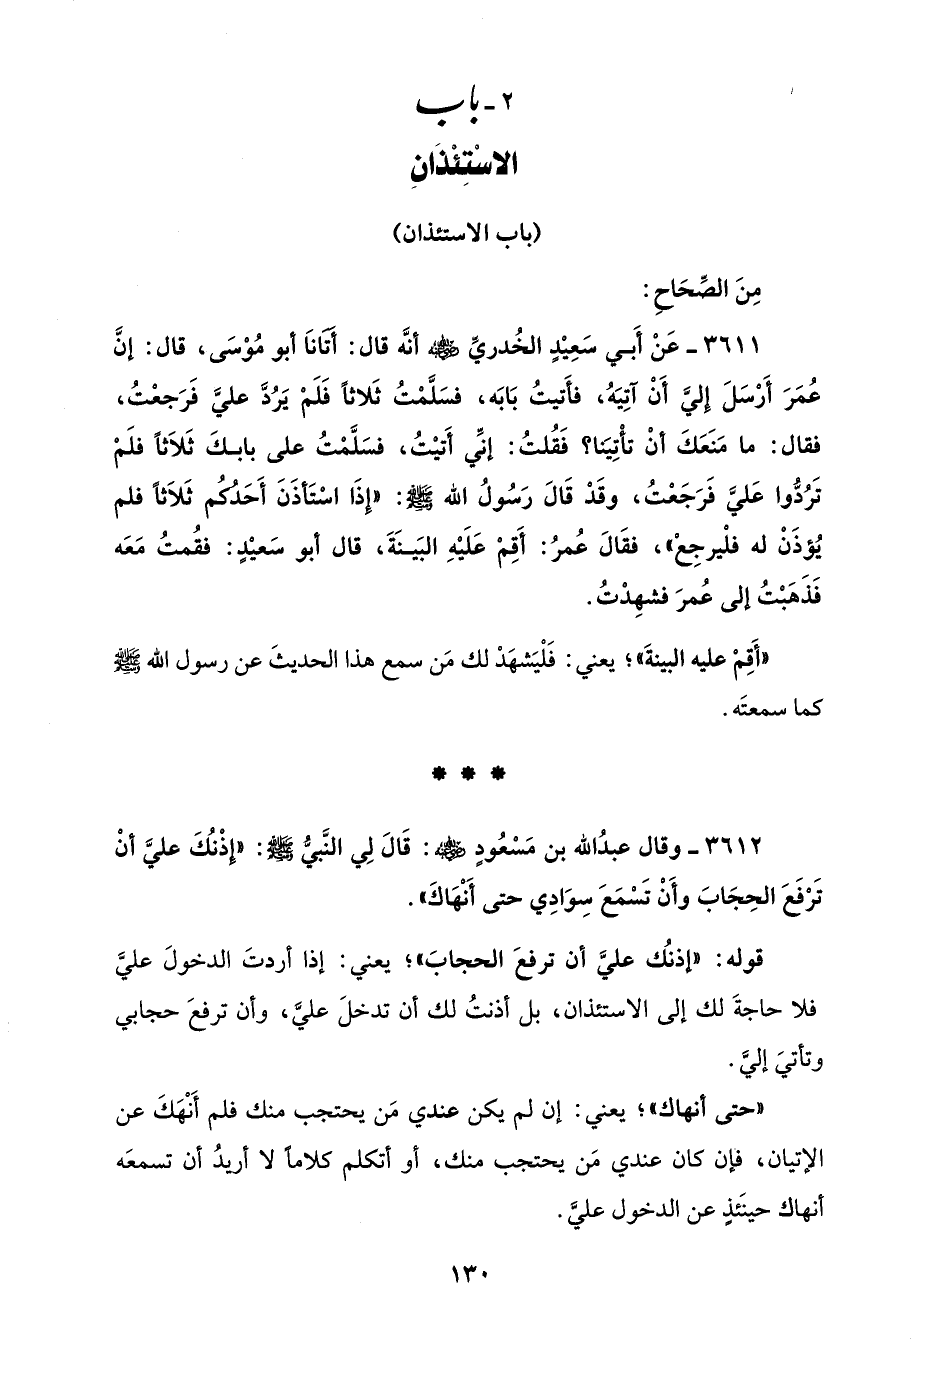 ٢ - باب
الاسْتِئْذَانِ
(باب الاستئذان)
مِنَ الصِّحَاحِ:
٣٦١١ - عَنْ أَبي سَعِيْدٍ الخُدريِّ ﷺ أنَّه قال: أَتَانَا أبو مُوْسَى، قال: إنَّ
عُمَرَ أَرْسَلَ إليَّ أَنْ آتِيَهُ، فأَتيتُ بَابَه، فسَلَّمْتُ ثَلاثاً فَلَمْ يَرُدَّ عليَّ فَرَجَعْتُ،
فقال: ما مَنَعَكَ أنْ تأْتِيَنا؟ فَقُلتُ: إنِّي أَتَيْتُ، فسَلَّمْتُ على بابِكَ ثَلاَثاً فلَمْ
تَرُدُّوا عَليَّ فَرَجَعْتُ، وقَدْ قَالَ رَسُولُ الله ﷺ: «إِذَا اسْتَأذَنَ أَحَدُكُم ثَلاَثاً فلم
يُؤذَنْ له فلْيرجِعْ»، فقَالَ عُمرُ: أَقِمْ عَلَيْهِ البَينةَ، قال أبو سَعيْدٍ: فقُمتُ مَعَه
فَذَهَبْتُ إلى عُمرَ فشهِدْتُ.
«أَقِمْ عليه البينةَ»؛ يعني: فَلْيَشهَدْ لك مَن سمع هذا الحديثَ عن رسول الله ﷺ
كما سمعتَه.
* * *
٣٦١٢ - وقال عبدُالله بن مَسْعُودٍ ﷺ: قَالَ لِي النَّبيُّ ﷺ: «إِذْنُكَ عليَّ أنْ
تَرْفَعَ الحِجَابَ وأَنْ تَسْمَعَ سِوَادِي حتى أَنْهَاكَ».
قوله: «إذنُك عليَّ أن ترفعَ الحجابَ»؛ يعني: إذا أردتَ الدخولَ عليَّ
فلا حاجةَ لك إلى الاستئذان، بل أذنتُ لك أن تدخلَ عليَّ، وأن ترفعَ حجابي
وتأتيَ إليَّ.
«حتى أنهاك»؛ يعني: إن لم يكن عندي مَن يحتجب منك فلم أَنْهَكَ عن
الإتيان، فإن كان عندي مَن يحتجب منك، أو أتكلم كلاماً لا أريدُ أن تسمعَه
أنهاك حينَئذٍ عن الدخول عليَّ.
١٣٠